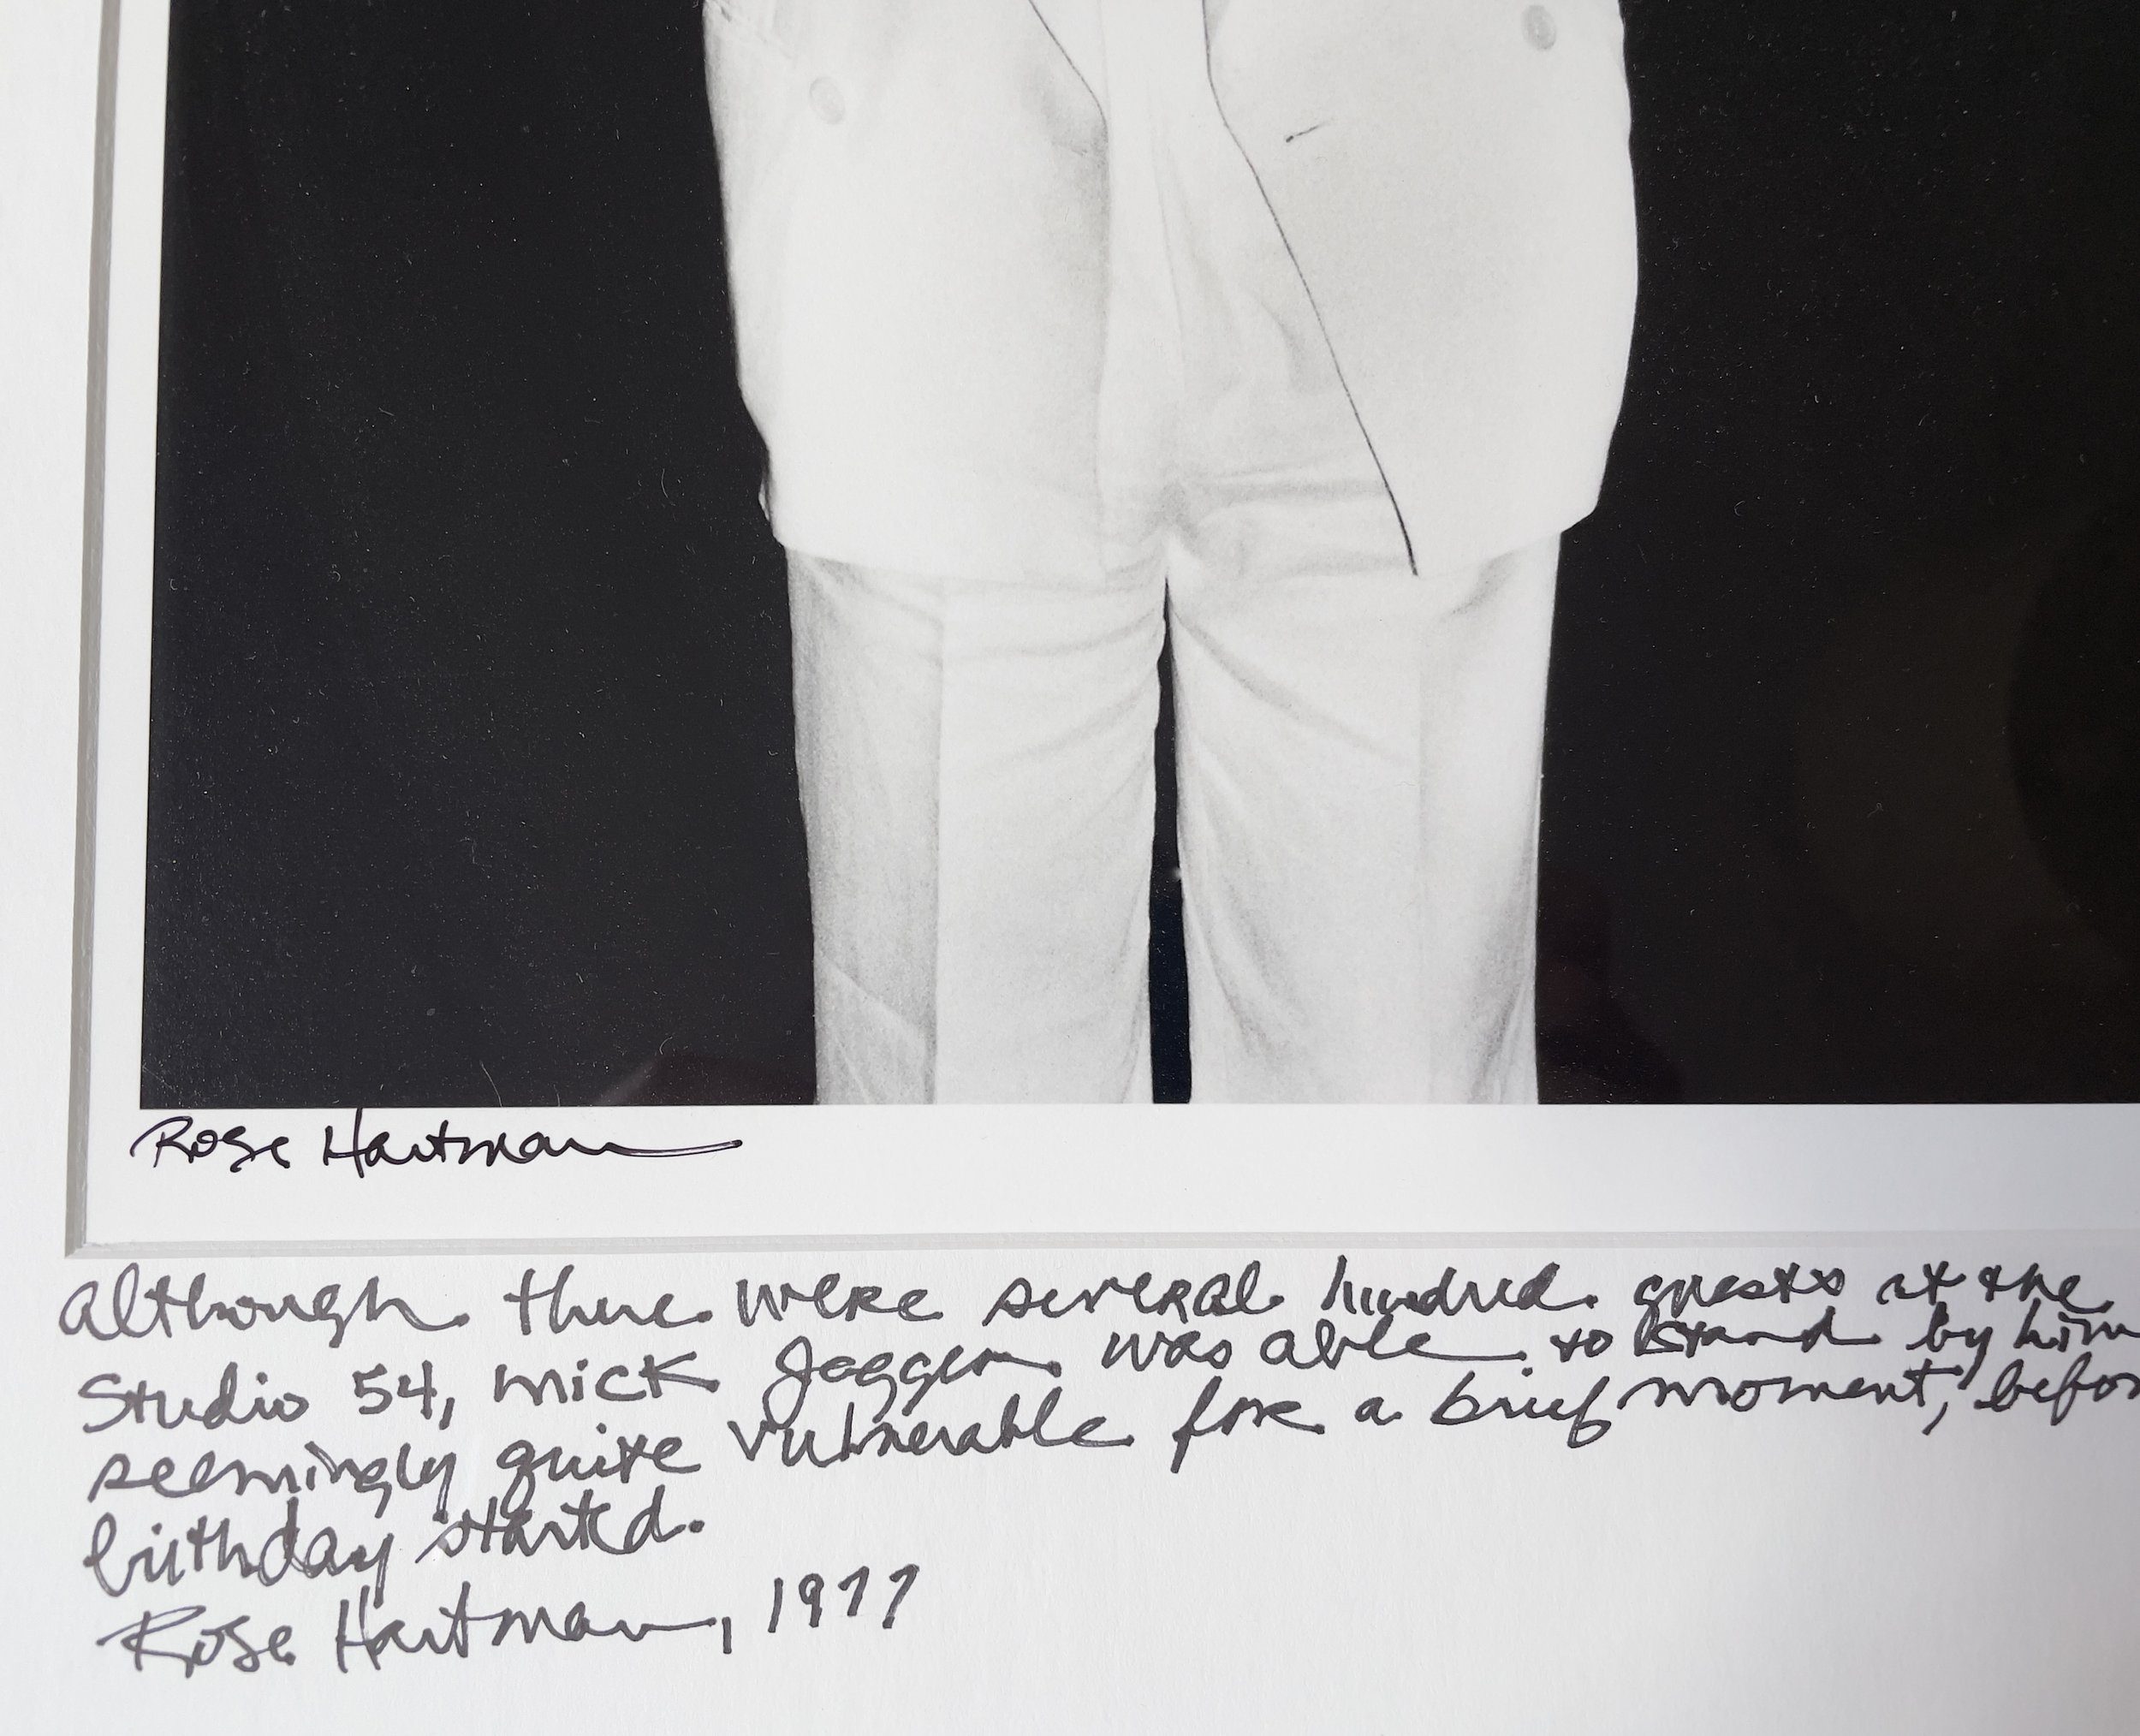 Rose Hartman
Although there were several hundred guests at the
Studio 54, Mick Jagger was able to stand by him
seemingly quite vulnerable for a brief moment, befor
birthday started.
Rose Hartman, 1977